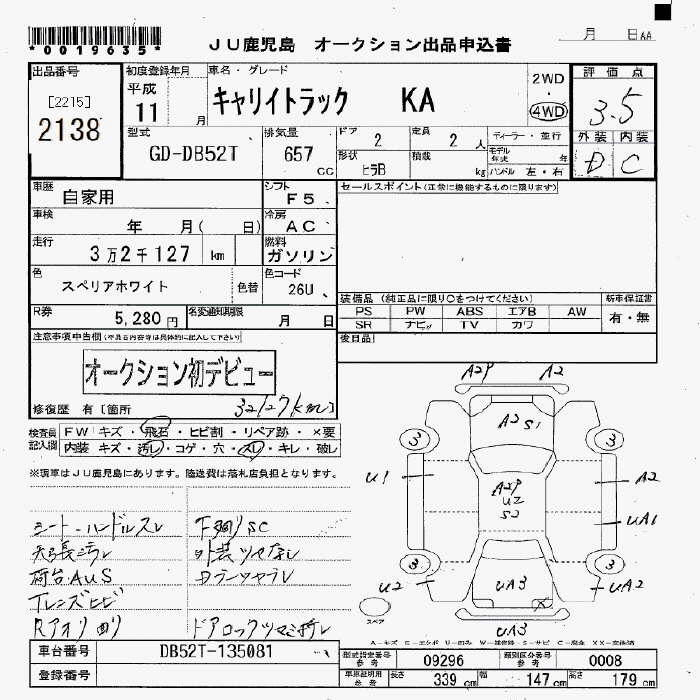 *0019635*
JU鹿児島 オークション出品申込書
月 日AA
出品番号
[2215]
2138
初度登録年月
平成
11 月
車名・グレード
キャリイトラック KA
2WD
・
4WD
評価点
3.5
外装 内装
D C
型式
GD-DB52T
排気量
657 cc
ドア
2
定員
2 人
形状
ヒラB
積載
kg
ディーラー・並行
モデル年式 年
ハンドル 左・右
車歴
自家用
シフト
F5
車検
年 月( 日)
冷房
AC
走行
3万2千127 km
燃料
ガソリン
色
スペリアホワイト
色替
色コード
26U
R券
5,280円
名変通知期限
月 日
セールスポイント(正常に機能するものに限ります)
装備品 (純正品に限り○をつけてください)
新車保証書
PS PW ABS エアB AW
有・無
SR ナビ TV カワ
後日品
注意事項申告欄
オークション初デビュー
修復歴 有 [箇所
32127km]
検査員記入欄
FW キズ・飛石・ヒビ割・リペア跡・×要
内装 キズ・汚レ・コゲ・穴・スレ・キレ・破レ
※現車はJU鹿児島にあります。陸送費は落札店負担となります。
シート・ハンドルスレ
荷台AUS
外装ツヤなし
ドアロックツマミ折レ
A2P A2
A2 S1
3 3
U1
A2P
U2
S2
A2
UA1
3 3
U2
UA3
UA2
スペア
UA3
車台番号
DB52T-135081
登録番号
型式指定番号
参考
09296
類別区分番号
参考
0008
車庫証明用
参考
長さ
339 cm
幅
147 cm
高さ
179 cm